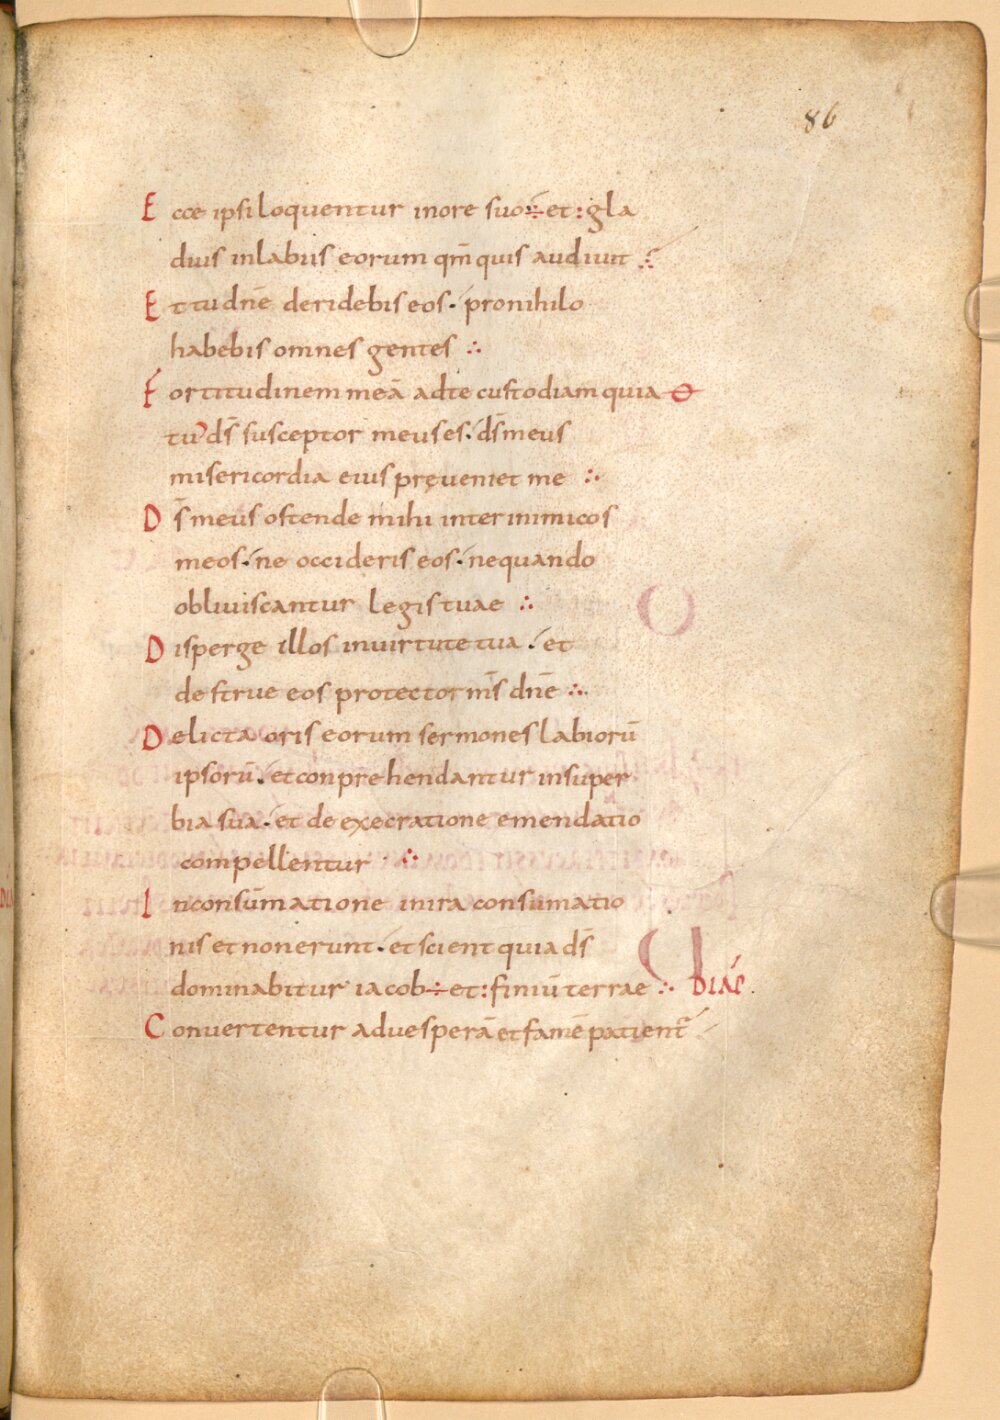 86
Ecce ipsi loquentur inore suo÷et:gla
dius inlabiis eorum qm̄ quis audiuit
Et tu dnē deridebis eos. pronihilo
habebis omnes gentes
Fortitudinem meā adte custodiam quia
tu ds̄ susceptor meus es. ds̄ meus
misericordia eius pręueniet me
Ds̄ meus ostende mihi inter inimicos
meos. ne occideris eos. nequando
obliuiscantur legis tuae
Disperge illos inuirtute tua. et
destrue eos protector ms̄ dnē
Delicta oris eorum sermones labiorū
ipsorū. et conprehendantur insuper
bia sua. et de execratione emendatio
compellentur
Inconsūmatione inira consūmatio
nis et non erunt. et scient quia ds̄
dominabitur iacob÷et:finiū terrae DIAC.
Conuertentur aduesperā et famē patient̄